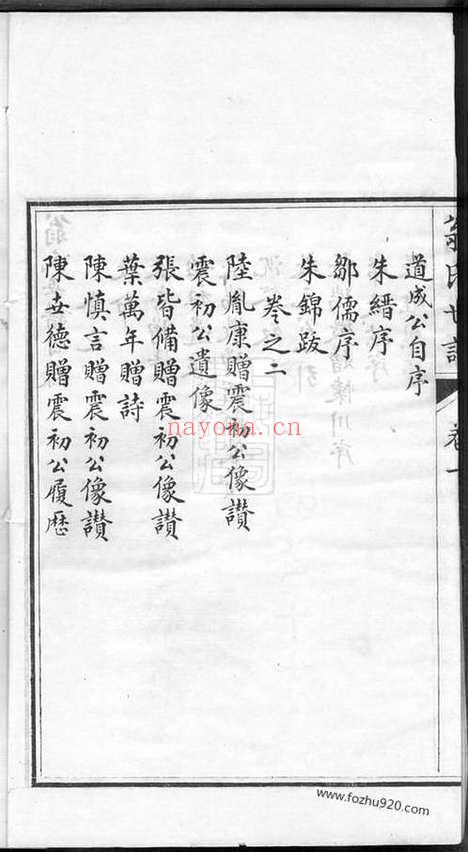 道成公自序
朱縉序
鄒儒序
朱錦跋
卷之二
陸胤康贈震初公像讚
震初公遺像
張皆備贈震初公像讚
葉萬年贈詩
陳慎言贈震初公像讚
陳世德贈震初公履歷
卷一
nayona.cn
www.fozhu920.com